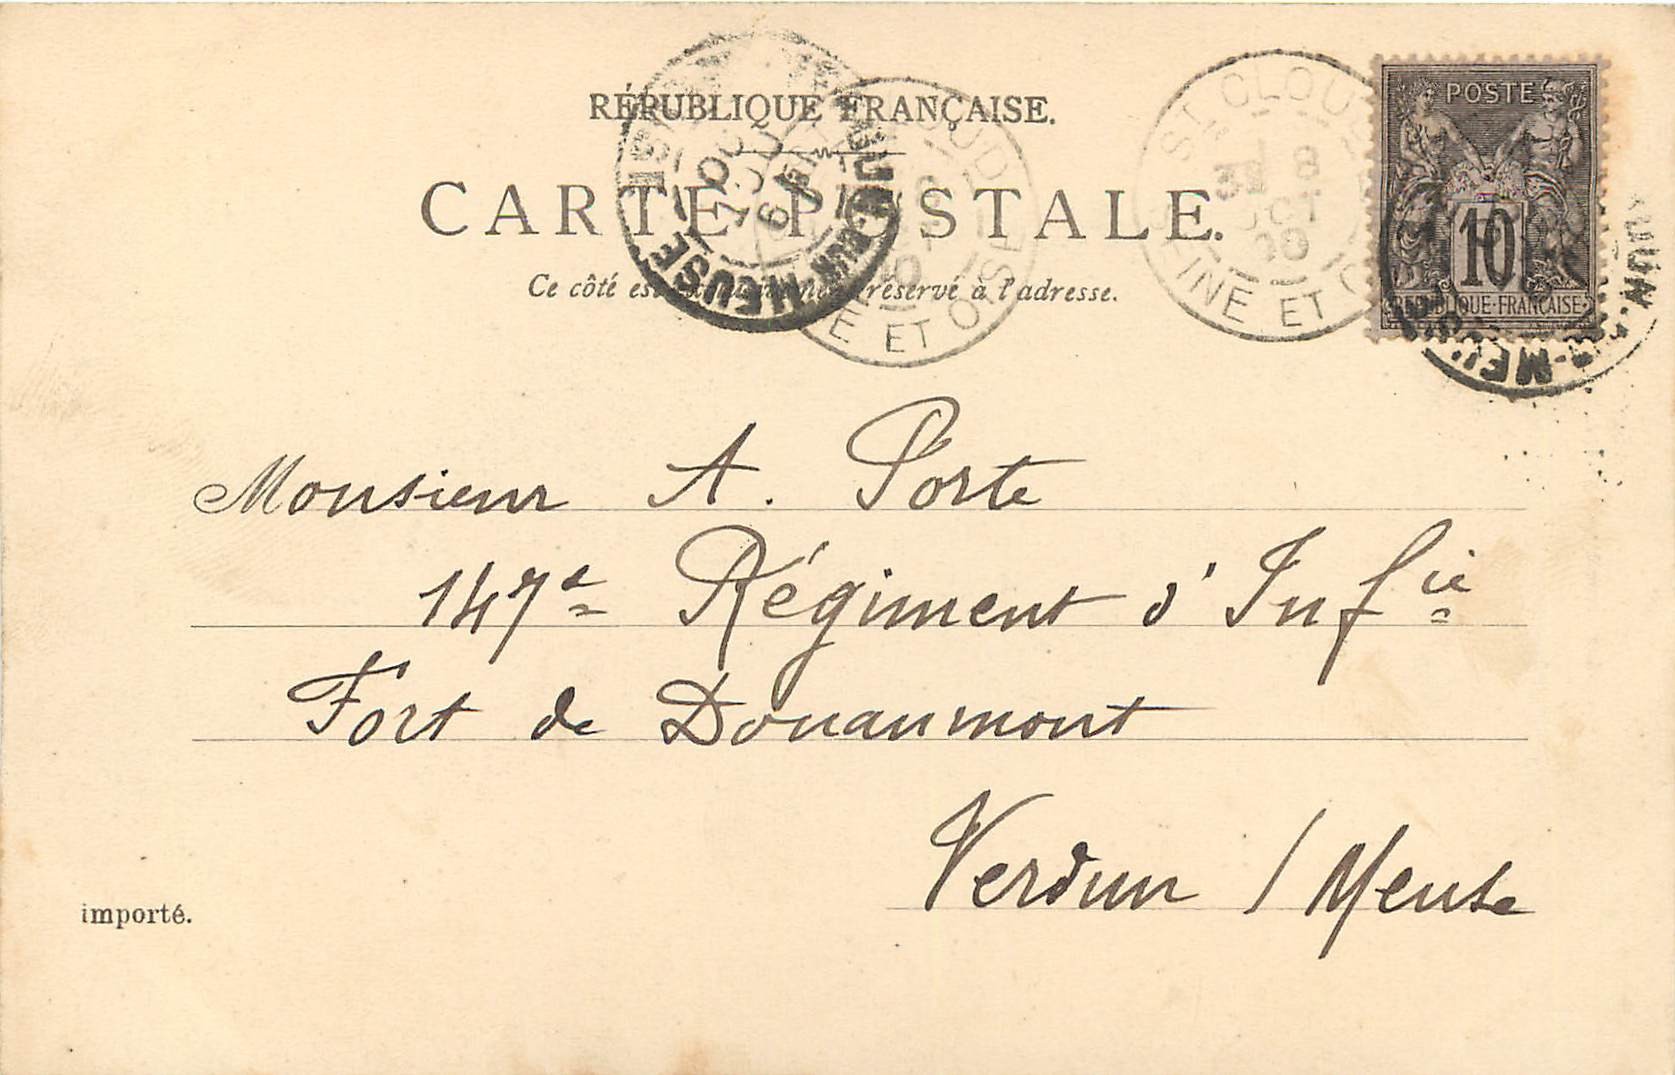 RÉPUBLIQUE FRANÇAISE.
CARTE POSTALE.
Ce côté est exclusivement réservé à l'adresse.
ST CLOUD
8
OCT
00
SEINE ET O
POSTE
10
REPUBLIQUE FRANÇAISE
Monsieur A. Porte
147e Régiment d'Infie
Fort de Douaumont
Verdun / Meuse
importé.